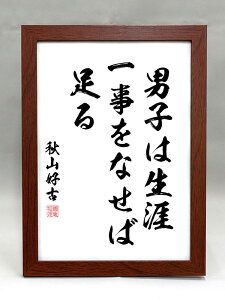 男子は生涯
一事をなせば
足る
秋山好古